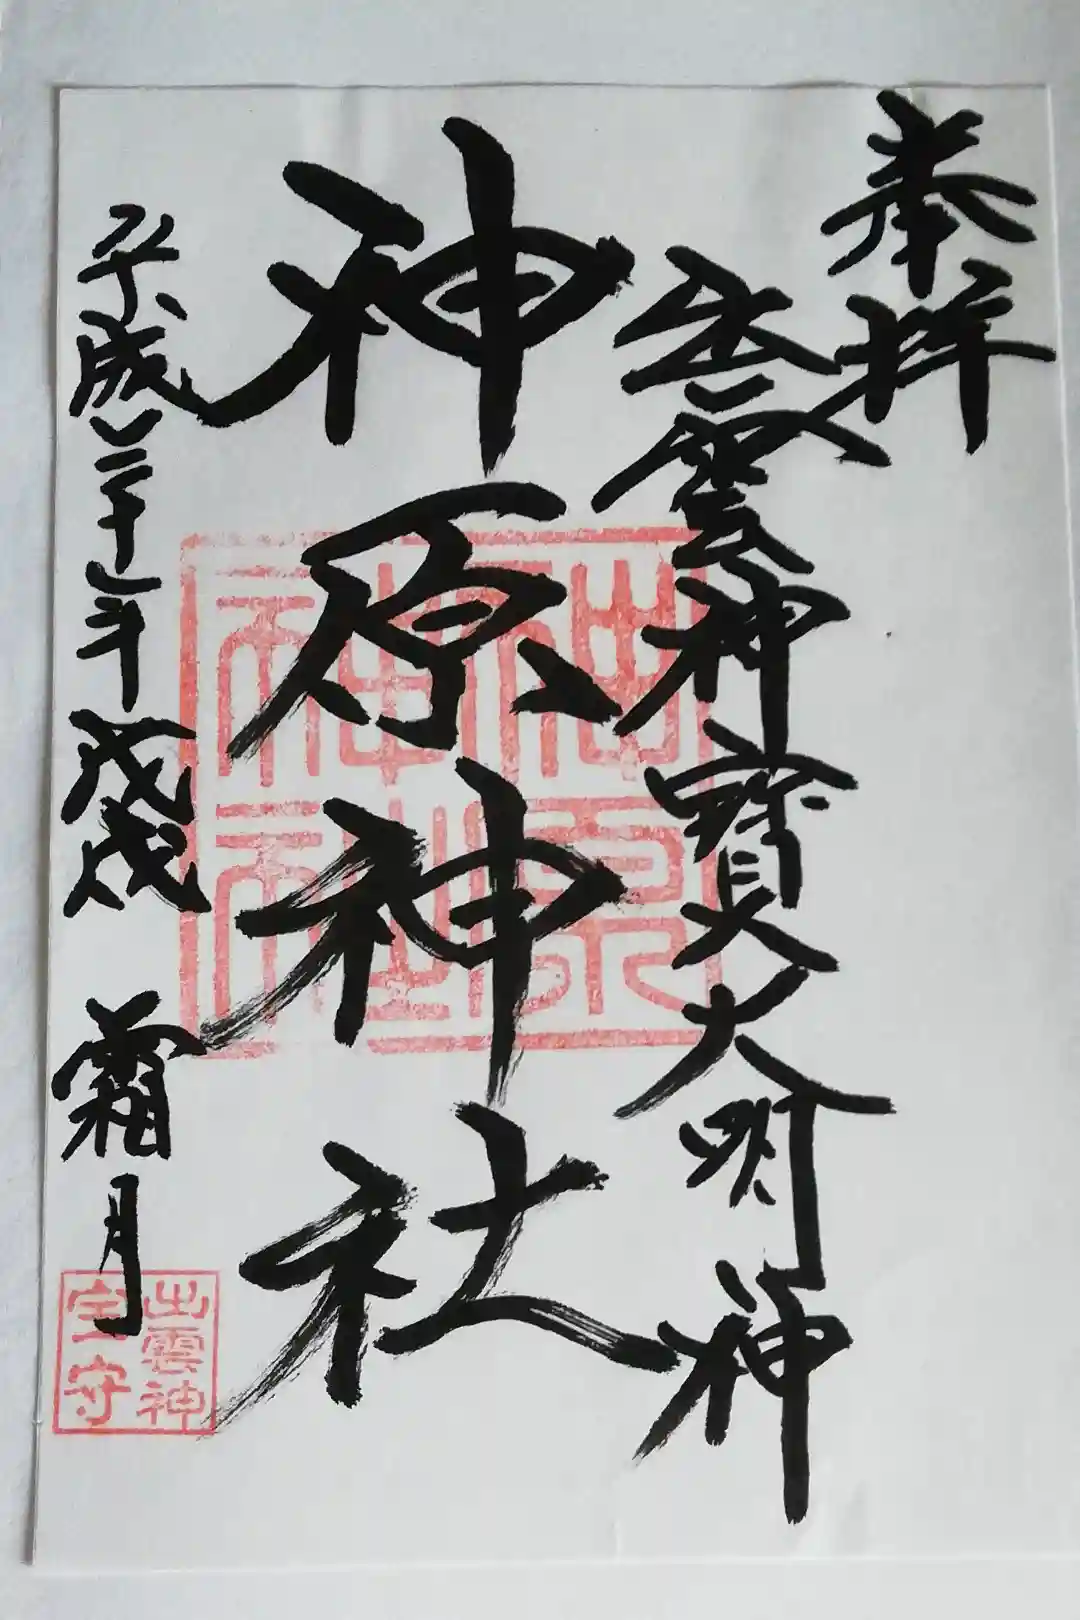 奉拝
出雲神寳大明神
神原神社
平成三十年 戊戌 霜月
神原
神社
出雲神
宝守